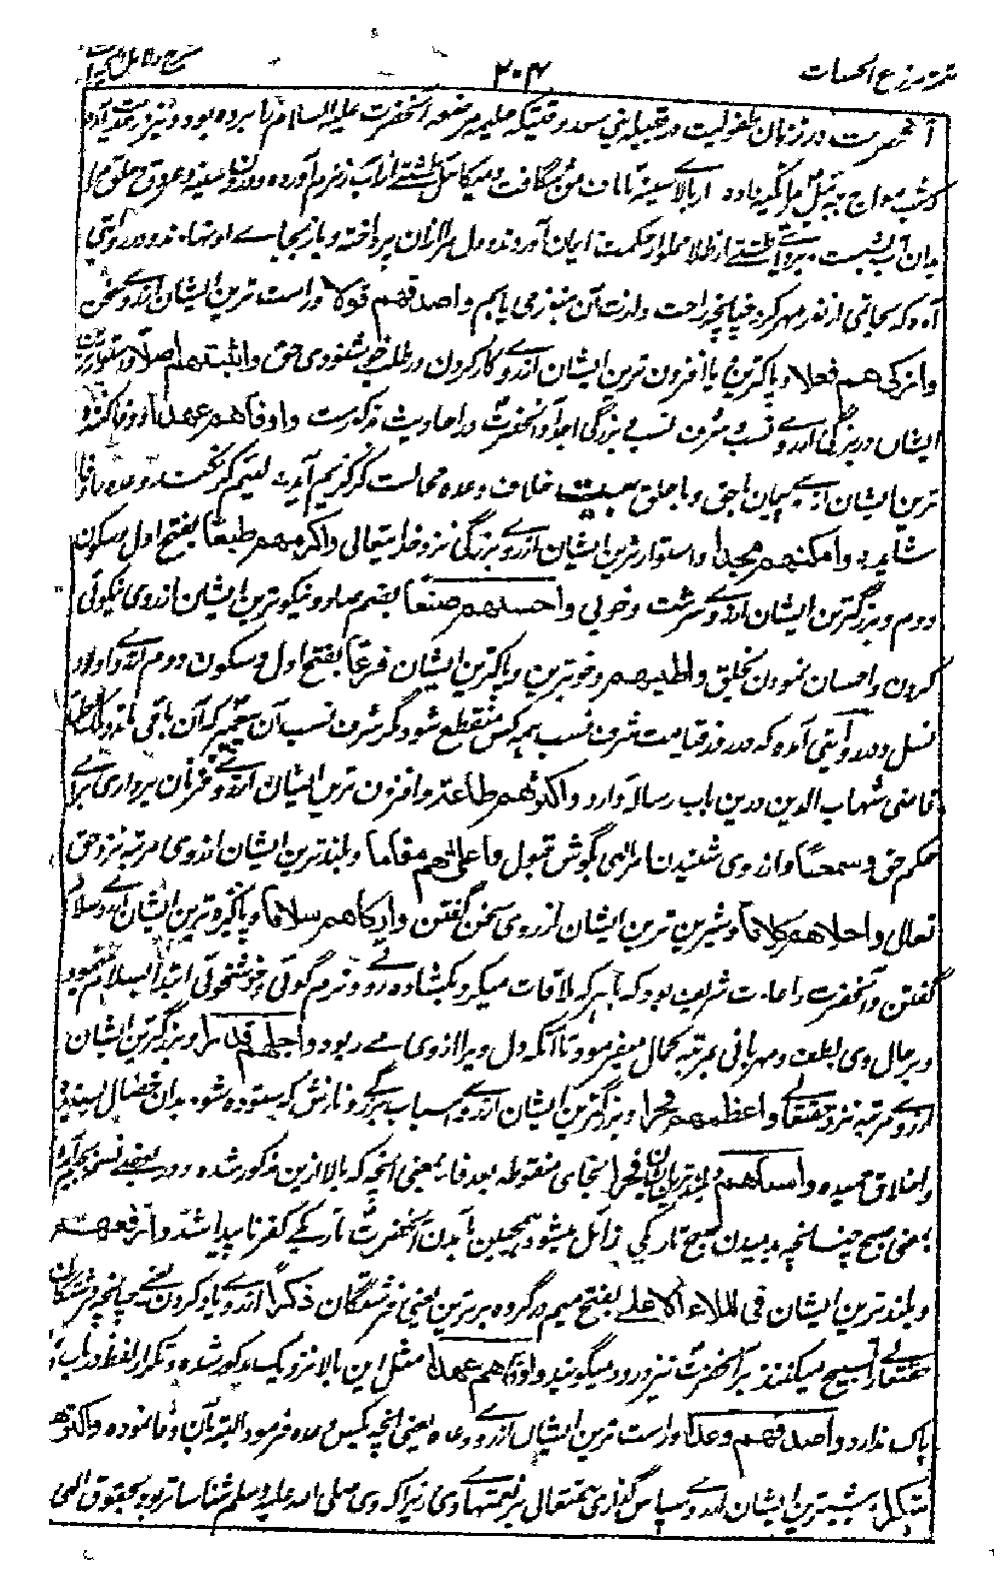 مزرع الحسنات
۲۰۴
شرح دلائل الخیرات
آنحضرت در زمان طفولیت در قبیله بنی سعد وقتیکه حلیمه مرضعه آنحضرت علیه السلام را برده بود و نیز در
شب معراج جبرئیل مر سینه از بالاے سینه تا ناف من شگافت و میکائیل طشتے از آب زمزم آورده و درون سینه و عروق حلق مرا
بدان آب بشست طشتے از طلا مملو از حکمت ایمان آوردند و دل مرا ازان پر ساخته و باز بجاے او نهادند و در روایتی
آمده که بخاتمی از نور مهر کرد چنانچه راحت و لذت آن هنوز می یابم واصدقهم قولا و راست ترین ایشان از روے سخن
وازکی هم فعلا و پاکترین یا افزون ترین ایشان از روے کار کردن در طلب خوشنودی حق واثبتهم اصلا و استوارترین
ایشان در بزرگی از روے نسب و شرف نسب و بزرگی اجداد آنحضرت در احادیث مذکورست واوفاهم عهدا و وفا کننده
ترین ایشان از روے پیمان باحق و باخلق خلاف وعده محالست کز کریم آید لئیم گر نکند وعده را وفا
شاید وامکنهم مجدا و استوارترین ایشان از روے بزرگی نزد خدا یتعالی واکرمهم طبعا بفتح اول و سکون
دوم و بزرگترین ایشان از روے سرشت و خوبی واحسنهم صنعا بضم صاد و نیکوترین ایشان از روی نیکوئی
کردن و احسان نمودن بخلق واطیبهم و خوبترین و پاکترین ایشان فرعا بفتح اول و سکون دوم از روے اولاد
نسل و در روایتی آمده که در روز قیامت شرف نسب همه کس منقطع شود مگر شرف نسب آن پیغمبر که آن باقی ماند
قاضی شهاب الدین درین باب رساله دارد واکثرهم طاعة و افزون ترین ایشان از روے فرمان برداری براے
حکم حق وسمعا و از روی شنیدن امر الهی بگوش قبول واعلاهم مقاما و بلندترین ایشان از روی مرتبه نزد حق
تعالی واحلاهم کلاما و شیرین ترین ایشان از روی سخن گفتن وازکاهم سلاما و پاکیزه ترین ایشان از روے سلام
گفتن و آنحضرت را عادت شریف بود که با هر که ملاقات میکرد بکشاده روے و نرم گوئی و خوشخوئی ابتدا بسلام مینمود
و بر حال وی لطف و مهربانی بمرتبه کمال میفرمود تا آنکه دل ویرا از وی مے ربود واجلهم قدرا و بزرگترین ایشان
از روے مرتبه نزد حقتعالے واعظمهم فخرا و بزرگترین ایشان از روے اسباب بزرگے و نازش که ستوده شود بدان خصال پسندیده
و اخلاق حمیده واسناهم فخرا بخای منقوطه بعد فا بمعنی آنچه که بالا ازین مذکور شده و در بعضے نسخ بجیم آمده
بمعنی صبح چنانچه بدمیدن صبح تاریکی زائل میشود همچنین بآمدن آنحضرت تاریکے کفر ناپیدا شد وارفعهم
و بلندترین ایشان فی الملاء الاعلے بفتح میم در گروه برترین یعنی فرشتگان ذکرا از روے یاد کردن چنانچه فرشتگان
حقتعالے را تسبیح میکنند بر آنحضرت نیز درود میگویند واوفاهم عهدا مثل این بالا نزدیک مذکور شده و تکرار لفظ
باک ندارد واصدقهم وعدا و راست ترین ایشان از روے وعده یعنی آنچه بکس وعده فرمود البته بآن وفا نموده واکثرهم
شکرا بیشترین ایشان از روے سپاس گذاری حقتعالی بر نعمتهاے وی زیرا که وی صلی الله علیه وسلم شناساتر بود بحقوق الهی